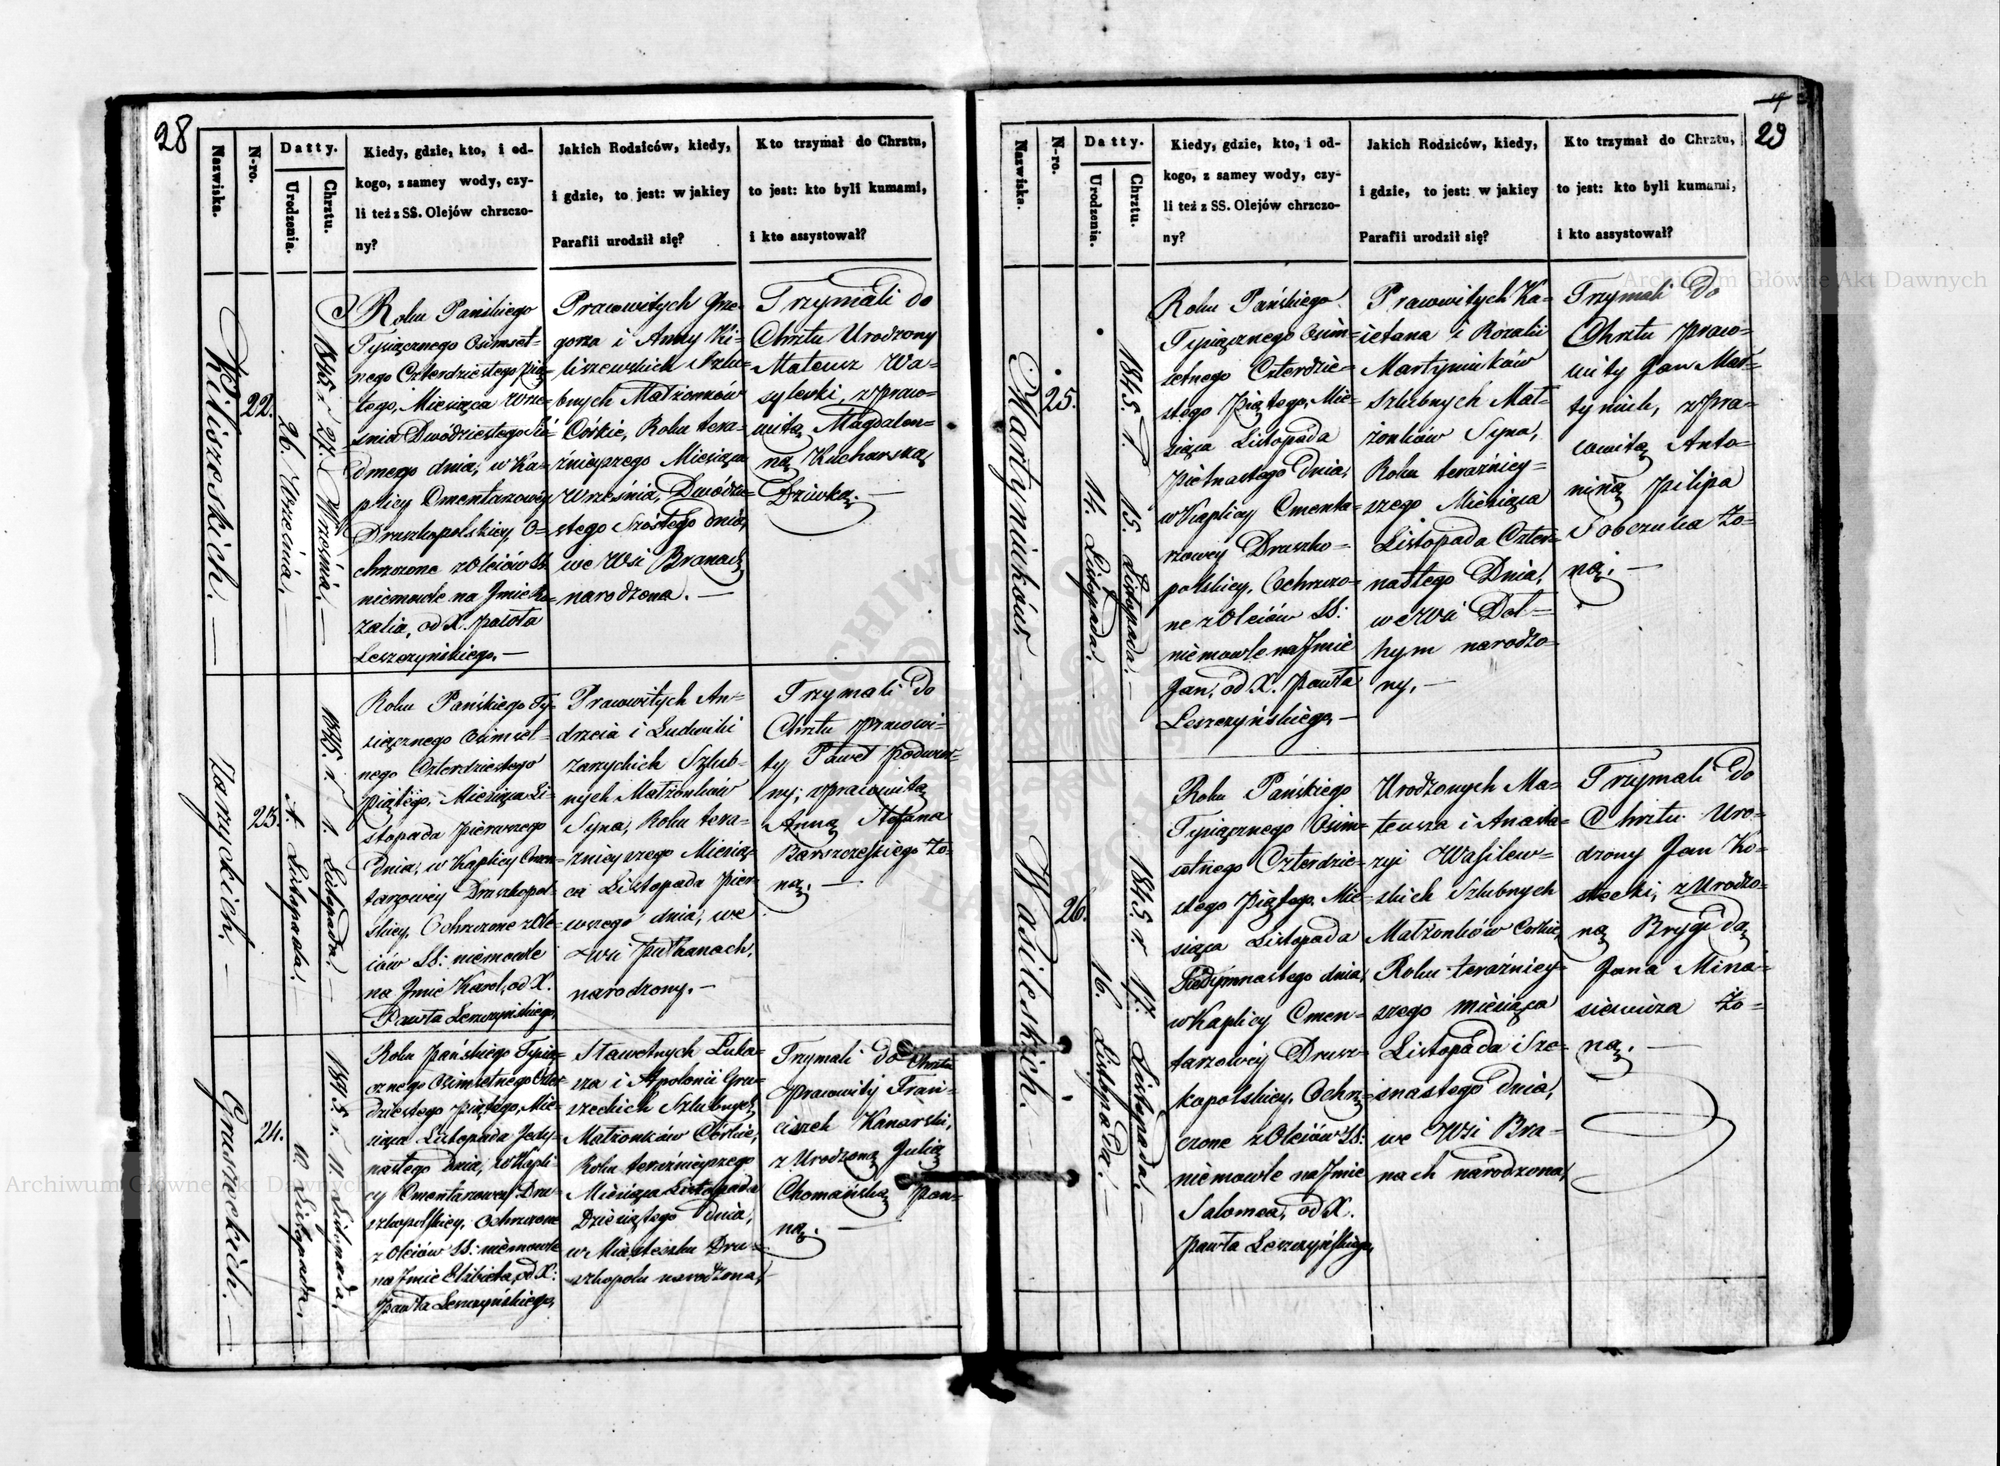 28
Nazwiska.
N-ro.
Datty.
Urodzenia.
Chrztu.
Kiedy, gdzie, kto, i od-
kogo, z samey wody, czy-
li też z SS. Olejów chrzczo-
ny?
Jakich Rodziców, kiedy,
i gdzie, to jest: w jakiey
Parafii urodził się?
Kto trzymał do Chrztu,
to jest: kto byli kumami,
i kto assystował?
Keliszeskich.
22.
26. Września,
1845. r. 27. Września.
Roku Pańskiego
Tysiącznego Ośmset-
nego Czterdziestego Pią-
tego, Miesiąca Wrze-
śnia Dwódziestego Sió-
dmego dnia, w Ka-
plicy Cmentarzowey
Druszkopolskiey, O-
chrzczone z Oleiów SS.
niemowle na Jmie Ro-
zalia, od X. Pawła
Leszczyńskiego.
Prawowitych Grze-
gorza i Anny Ke-
liszewskich Szlu-
bnych Małżonków
Córkie, Roku tera-
źnieyszego Miesiąca
Września, Dwódzie-
stego Szóstego dnia,
we Wsi Branach
narodzona.
Trzymali do
Chrztu Urodzony
Mateusz Wa-
syleski, z Prawo-
witą Magdalen-
ną Kucharską
Dziwką.
Zaruckich.
23.
1. Listopada.
1845. r. 1. Listopada.
Roku Pańskiego Ty-
siącznego Ośmset-
nego Czterdziestego
Piątego, Miesiąca Li-
stopada Pierwszego
Dnia, w Kaplicy Cmen-
tarzowey Druszkopol-
skiey, Ochrzczone z Ole-
iów SS: niemowle
na Jmie Karol, od X.
Pawła Leszczyńskiego,
Prawowitych An-
drzeia i Ludwiki
Zaryckich Szlub-
nych Małżonków
Syna, Roku tera-
źnieyszego Miesią-
ca Listopada Pier-
wszego dnia, we
Wsi Pułhanach,
narodzony.
Trzymali do
Chrztu Prawowi-
ty Paweł
z Prawowitą
Anną Stefana
Barszczeskiego Żo-
ną.
Gruszeckich.
24.
10 Listopada.
1845. r. 11. Listopada.
Roku Pańskiego Tysią-
cznego Ośmsetnego Czter-
dziestego Piątego, Mie-
siąca Listopada Jedy-
nastego Dnia, w Kapli-
cy Cmentarzowey Dru-
szkopolskiey, Ochrzczone
z Oleiów SS: niemowle
na Jmie Elżbieta, od X:
Pawła Leszczyńskiego,
Sławetnych Łuka-
sza i Apolonii Gru-
szeckich Szlubnych
Małżonków Córkie,
Roku teraźnieyszego
Miesiąca Listopada
Dziesiątego dnia,
w Miasteczku Dru-
szkopolu narodzona,
Trzymali do Chrztu
Prawowity Fran-
ciszek Kanarski,
z Urodzoną Julią
Chomańską Pan-
ną.
29
Nazwiska.
N-ro.
Datty.
Urodzenia.
Chrztu.
Kiedy, gdzie, kto, i od-
kogo, z samey wody, czy-
li też z SS. Olejów chrzczo-
ny?
Jakich Rodziców, kiedy,
i gdzie, to jest: w jakiey
Parafii urodził się?
Kto trzymał do Chrztu,
to jest: kto byli kumami,
i kto assystował?
Martyniuków.
25.
14. Listopada.
1845. r. 15. Listopada.
Roku Pańskiego
Tysiącznego Ośm-
setnego Czterdzie-
stego Piątego, Mie-
siąca Listopada
Pietnastego Dnia,
w Kaplicy Cmenta-
rzowey Druszko-
polskiey, Ochrzczo-
ne z Oleiów SS:
niemowle na Jmie
Jan, od X. Pawła
Leszczyńskiego,
Prawowitych Ka-
ietana i Rozalii
Martyniuków
Szlubnych Mał-
żonków Syna,
Roku teraźniey-
szego Miesiąca
Listopada Czter-
nastego Dnia,
we Wsi Dol-
hym narodzo-
ny.
Trzymali Do
Chrztu Prawo-
wity Jan Mar-
tyniuk, z Pra-
wowitą Anto-
niną Pilipa
Sobczuka Żo-
ną.
Wasileskich.
26.
16. Listopada.
1845. r. 17. Listopada.
Roku Pańskiego
Tysiącznego Ośm-
setnego Czterdzie-
stego Piątego, Mie-
siąca Listopada
Siedymnastego dnia,
w Kaplicy Cmen-
tarzowéy Drusz-
kopolskiey, Ochrz-
czone z Oleiów SS:
niemowle na Jmie
Salomea, od X.
Pawła Leszczyńskiego,
Urodzonych Ma-
teusza i Anasta-
zyi Wasilew-
skich Szlubnych
Małżonków Córkie,
Roku teraźniey-
szego miesiąca
Listopada Sze-
snastego Dnia,
we Wsi Bra-
nach narodzona,
Trzymali Do
Chrztu Uro-
dzony Jan Ko-
z Urodzo-
ną Brygidą
Jana Mina-
siewicza Żo-
ną.
Archiwum Główne Akt Dawnych
Archiwum Główne Akt Dawnych